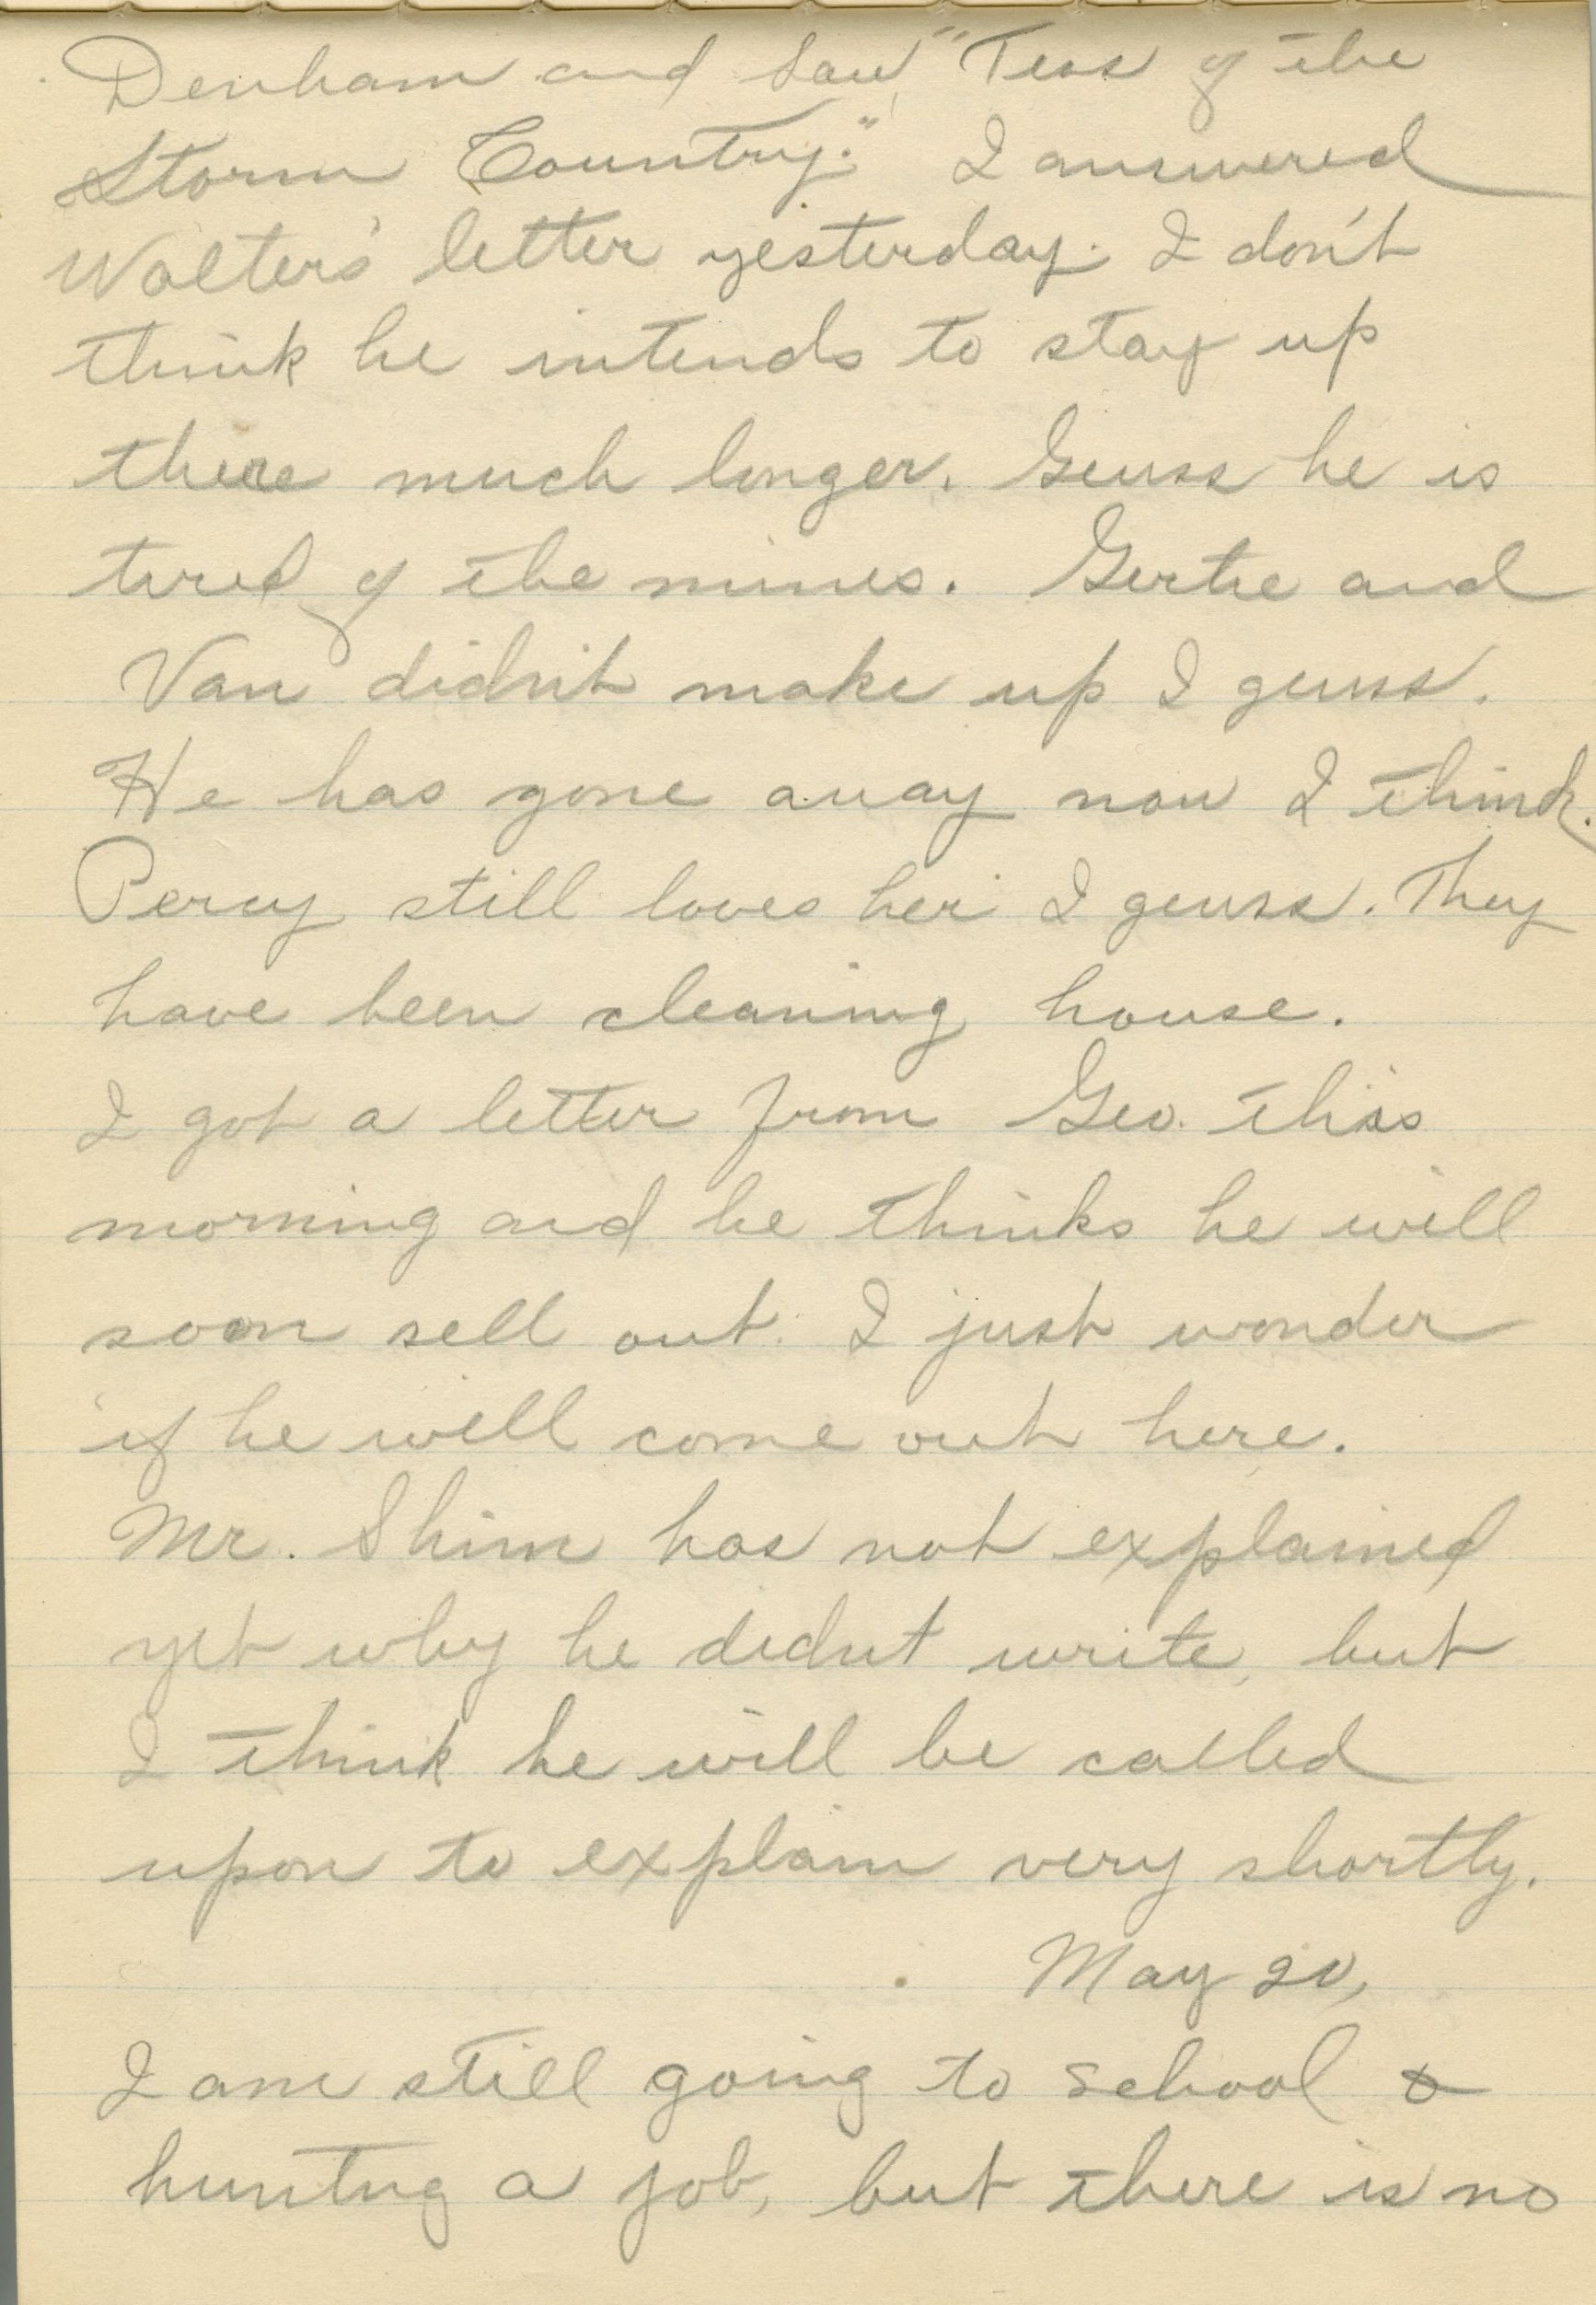 Denham and saw "Tess of the
Storm Country." I answered
Walter's letter yesterday. I don't
think he intends to stay up
there much longer. Geuss he is
tired of the mines. Gertie and
Van didn't make up I geuss.
He has gone away now I think.
Percy still loves her I geuss. They
have been cleaning house.
I got a letter from Geo. this
morning and he thinks he will
soon sell out. I just wonder
if he will come out here.
Mr. Shinn has not explained
yet why he didnt write, but
I think he will be called
upon to explain very shortly.
May 20,
I am still going to school &
huntng a job, but there is no